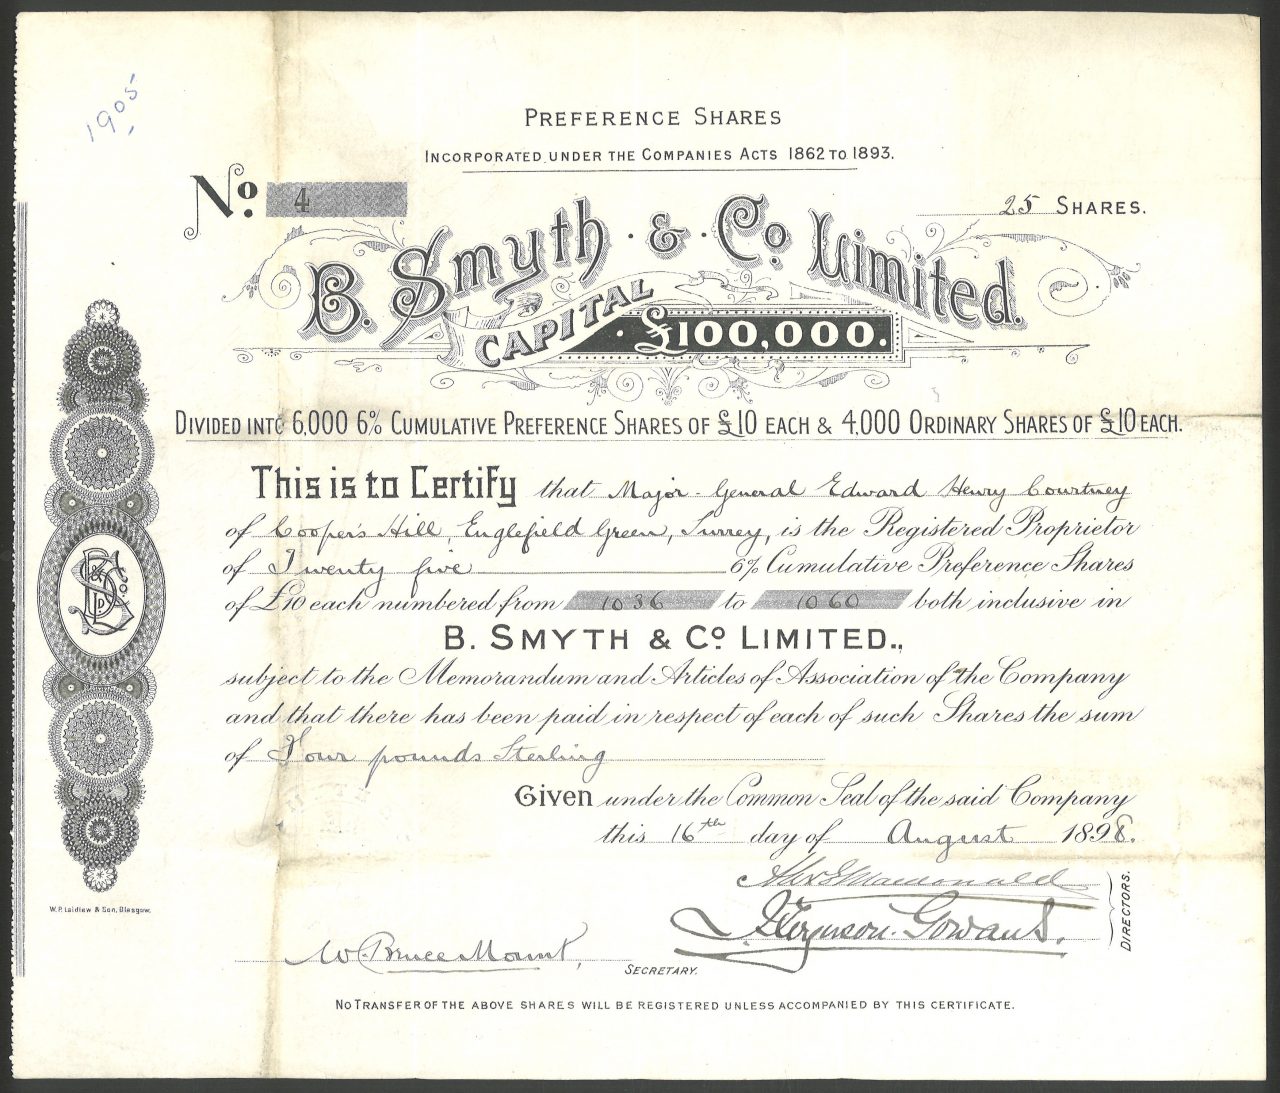 1905
PREFERENCE SHARES
INCORPORATED UNDER THE COMPANIES ACTS 1862 TO 1893.
No. 4
25 SHARES.
B. Smyth & Co Limited.
CAPITAL £100,000.
DIVIDED INTO 6,000 6% CUMULATIVE PREFERENCE SHARES OF £10 EACH & 4,000 ORDINARY SHARES OF £10 EACH.
This is to Certify that Major-General Edward Henry Courtney
of Cooper's Hill, Englefield Green, Surrey, is the Registered Proprietor
of Twenty five 6% Cumulative Preference Shares
of £10 each numbered from 1036 to 1060 both inclusive in
B. SMYTH & Co LIMITED.,
subject to the Memorandum and Articles of Association of the Company
and that there has been paid in respect of each of such Shares the sum
of Four pounds Sterling
Given under the Common Seal of the said Company
this 16th day of August 1898.
Macdonald
J. Ferguson Gowans.
DIRECTORS.
W. Bruce Mount,
SECRETARY.
W.P. Laidlaw & Son, Glasgow.
NO TRANSFER OF THE ABOVE SHARES WILL BE REGISTERED UNLESS ACCOMPANIED BY THIS CERTIFICATE.